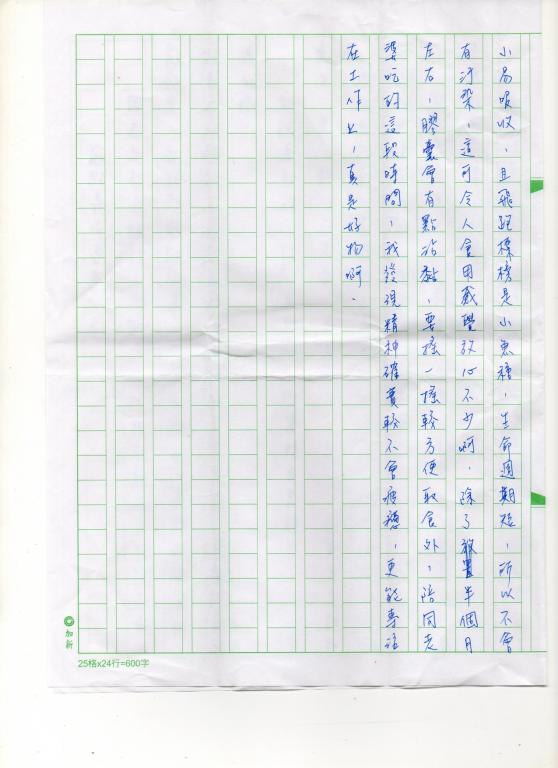 小易吸收，且飛跑標榜是小魚種，生命週期短，所以不會
有汙染，這可令人食用感覺放心不少啊，除了放置半個月
左右，膠囊會有點沾黏，要搖一搖較方便取食外，陪同老
婆吃的這段時間，我發現精神確實較不會疲憊，更能專注
在工作上，真是好物啊。
加新
25格x24行=600字